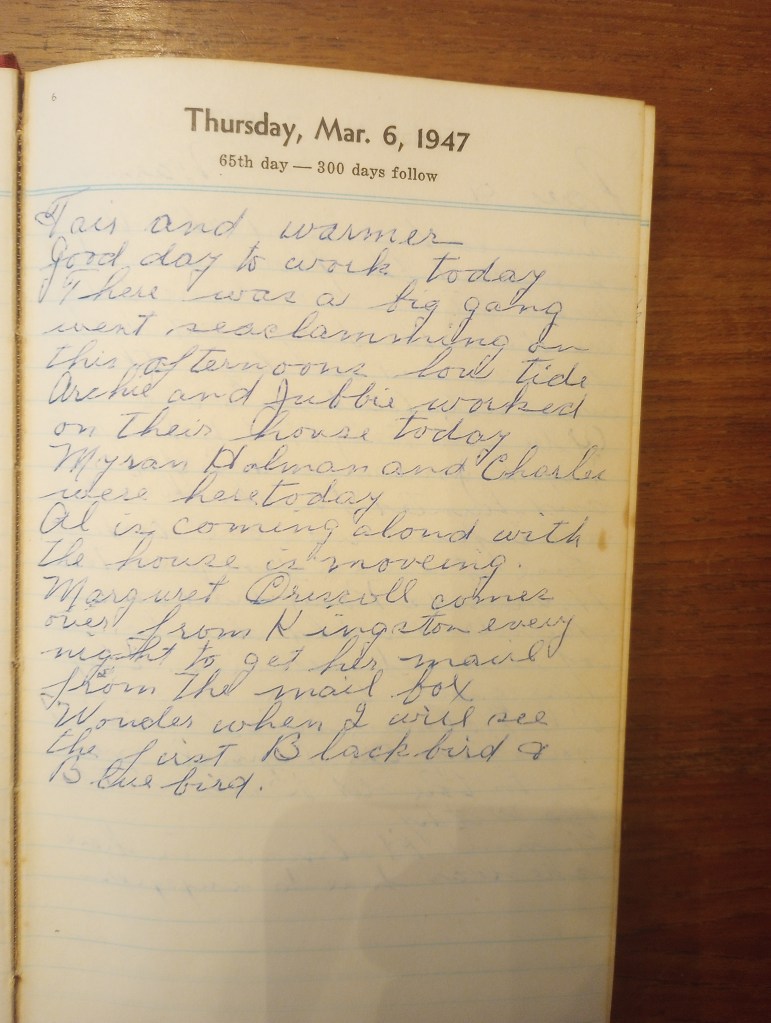 6
Thursday, Mar. 6, 1947
65th day — 300 days follow
Fair and warmer
Good day to work today
There was a big gang
went seaclamming on
this afternoons low tide
Archie and Jubbie worked
on their house today
Myran Holman and Charlie
were here today
Al is coming alond with
the house is moveing.
Marguret Driscoll comes
over from Kingston every
night to get her mail
from the mail box
Wonder when I will see
the first Blackbird &
Bluebird.